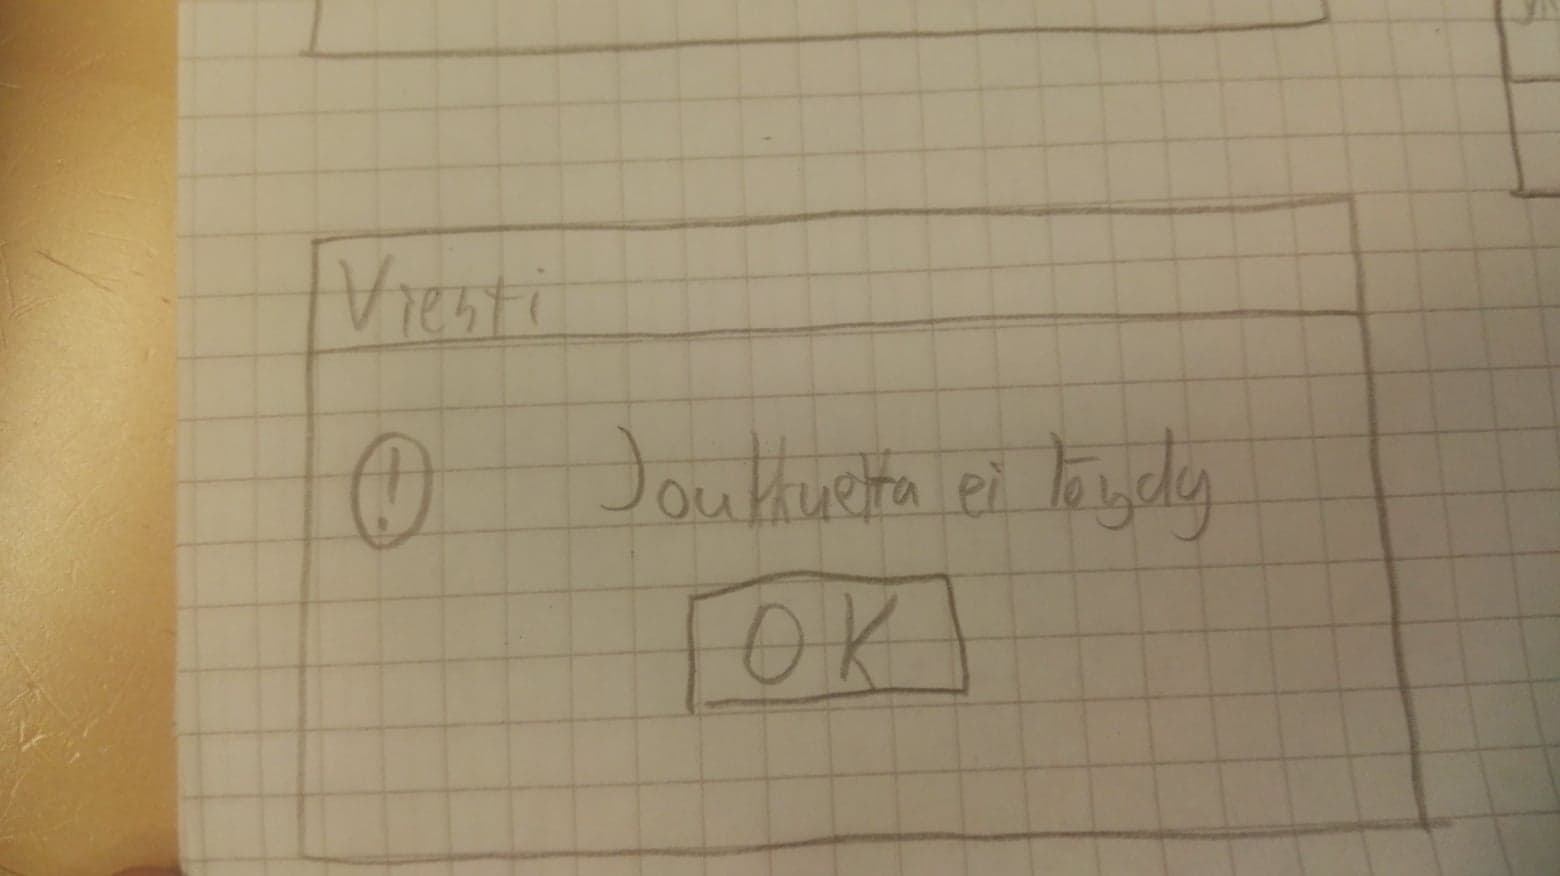 Viesti
! Joukkuetta ei löydy
OK